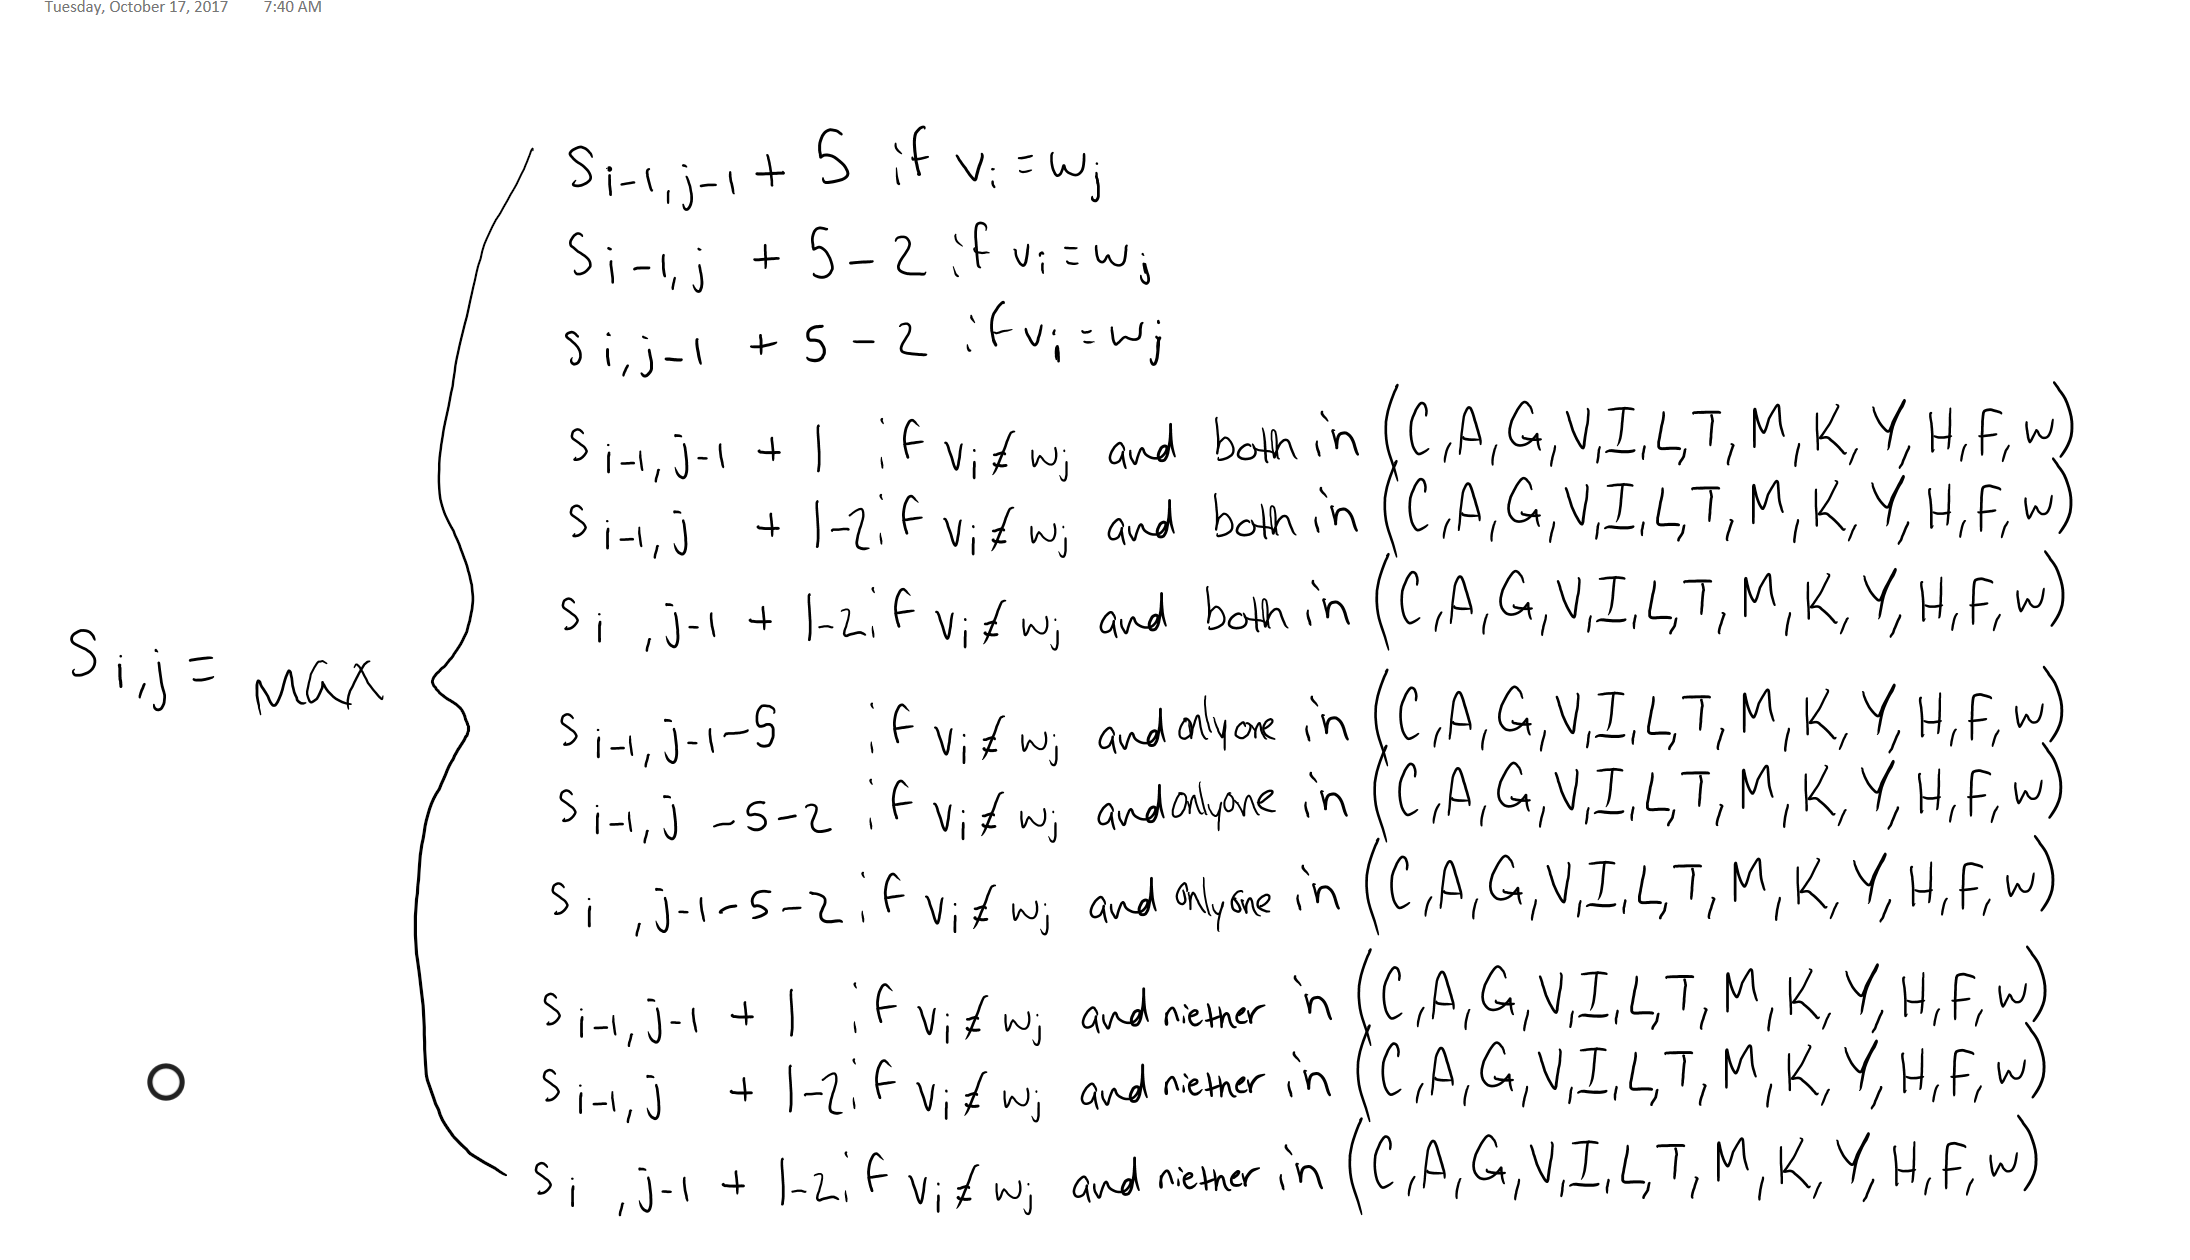 Tuesday, October 17, 2017 7:40 AM
S i-1,j-1 + 5 if vi = wj
S i-1,j + 5 - 2 if vi = wj
S i,j-1 + 5 - 2 if vi = wj
S i-1,j-1 + 1 if vi ≠ wj and both in (C,A,G,V,I,L,T,M,K,Y,H,F,W)
S i-1,j + 1-2 if vi ≠ wj and both in (C,A,G,V,I,L,T,M,K,Y,H,F,W)
S i,j-1 + 1-2 if vi ≠ wj and both in (C,A,G,V,I,L,T,M,K,Y,H,F,W)
S i,j = max
S i-1,j-1 - 5 if vi ≠ wj and only one in (C,A,G,V,I,L,T,M,K,Y,H,F,W)
S i-1,j - 5 - 2 if vi ≠ wj and only one in (C,A,G,V,I,L,T,M,K,Y,H,F,W)
S i,j-1 - 5 - 2 if vi ≠ wj and only one in (C,A,G,V,I,L,T,M,K,Y,H,F,W)
S i-1,j-1 + 1 if vi ≠ wj and niether in (C,A,G,V,I,L,T,M,K,Y,H,F,W)
S i-1,j + 1-2 if vi ≠ wj and niether in (C,A,G,V,I,L,T,M,K,Y,H,F,W)
S i,j-1 + 1-2 if vi ≠ wj and niether in (C,A,G,V,I,L,T,M,K,Y,H,F,W)